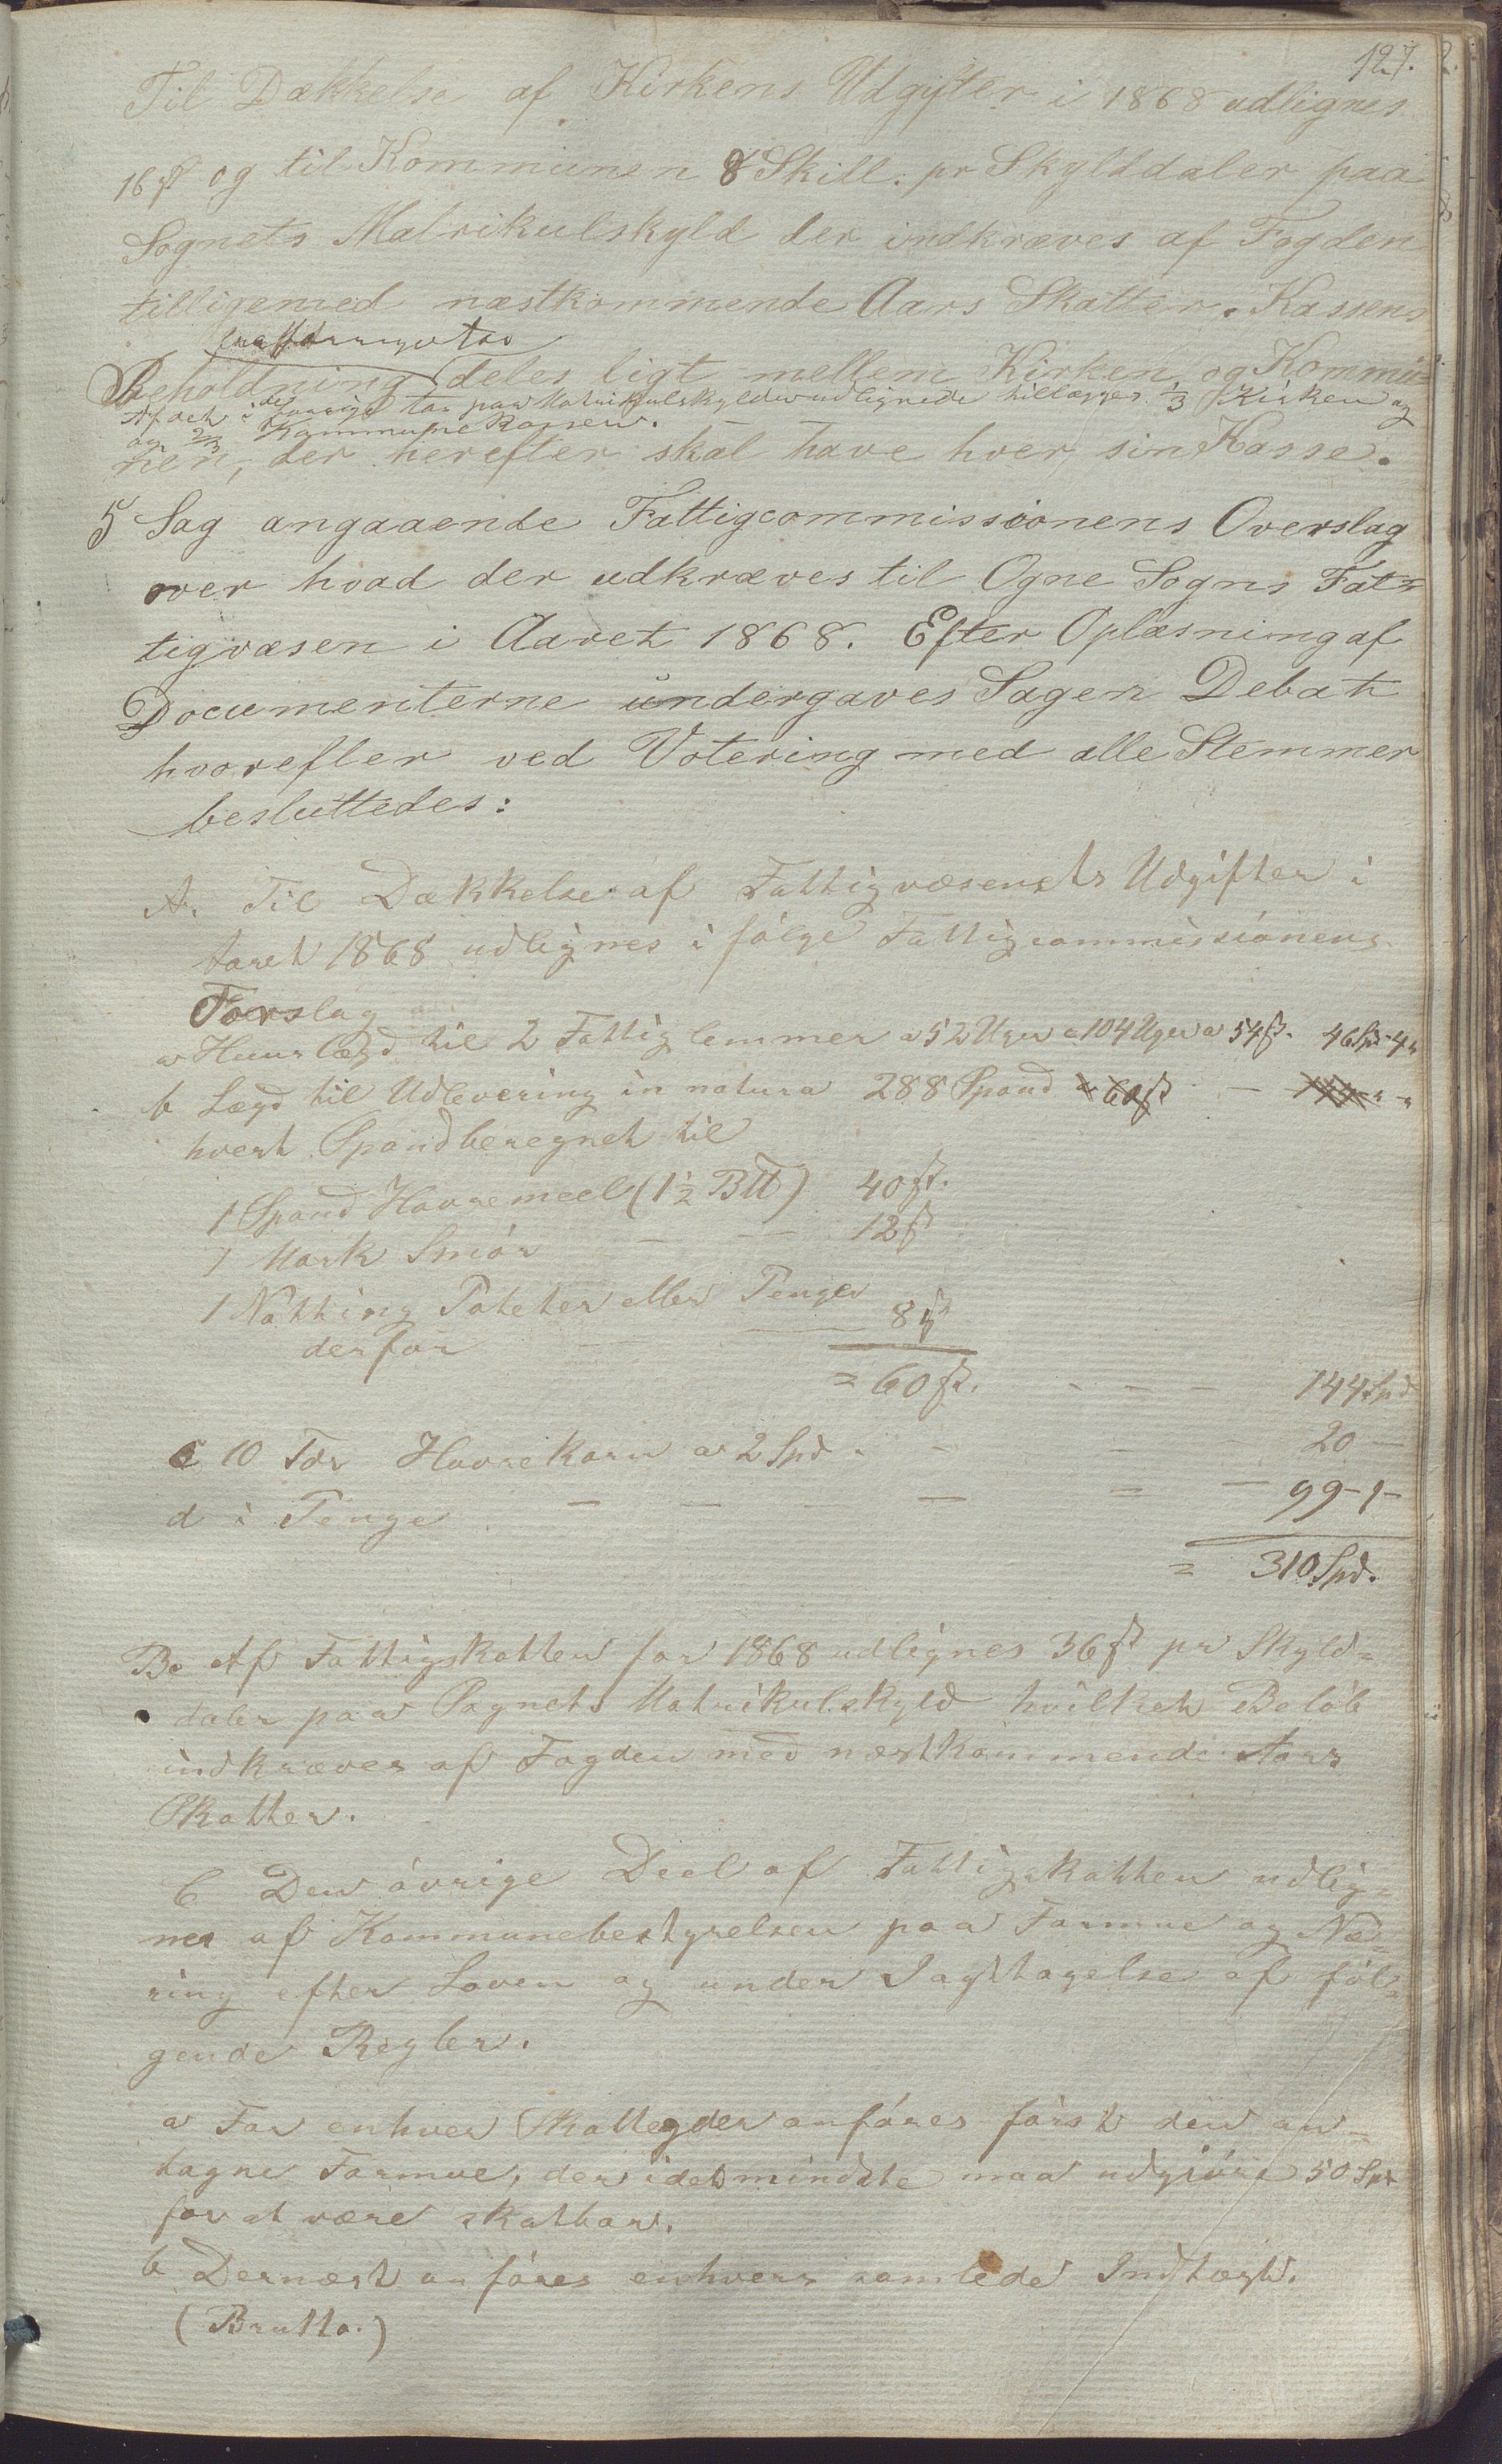 127.
Til Dækkelse af Kirkens Udgifter i 1868 udlignes
16 ß og til Kommunen 8 Skill. pr Skylddaler paa
Sognets Matrikulskyld der indkræves af Fogden
tilligemed næstkommende Aars Skatter. Kassens
Beholdning deles ligt mellem Kirken og Kommu=
Af det i de forrige Aar paa Matrikulskylden udlignede tillægges 1/3 Kirken og
og 2/3 Kommunekassen.
nen, der herefter skal have hver sin Kasse.
5 Sag angaaende Fattigcommissionens Overslag
over hvad der udkræves til Ogne Sogns Fat=
tigvæsen i Aaret 1868. Efter Oplæsning af
Documenterne undergaves Sagen Debat
hvorefter ved Votering med alle Stemmer
besluttedes:
A. Til Dækkelse af Fattigvæsenets Udgifter i
Aaret 1868 udlignes i følge Fattigcommissionens
Forslag
a Huuslægd til 2 Fattiglemmer a 52 Uger = 104 Uger a 54 ß. 46 Spd - 4 "
b Lægd til Udlevering in natura 288 Spand a 60 ß — 144 - " - "
hvert Spand beregnet til
1 Spand Havremeel (1½ B℔) 40 ß.
1 Mark Smør — — 12 ß
1 Nøtting Poteter eller Penge
derfor — 8 ß
= 60 ß. - - — 144 Spd
c 10 Tdr Havrekorn a 2 Spd. — — 20 —
d i Penge — — — — = — 99 - 1 -
= 310 Spd.
B. Af Fattigskatten for 1868 udlignes 36 ß pr Skyld=
daler paa Sognets Matrikulskyld hvilket Beløb
indkræves af Fogden med næstkommende Aars
Skatter.
C Den øvrige Deel af Fattigskatten udlig=
nes af Kommunebestyrelsen paa Formue og Næ=
ring efter Loven og under Iagttagelse af føl=
gende Regler.
a For enhver Skatteyder anføres først den an=
tagne Formue, der idetmindste maa udgjøre 50 Spd
for at være skatbar.
b Dernæst anføres enhvers samlede Indtægt.
(Brutto.)